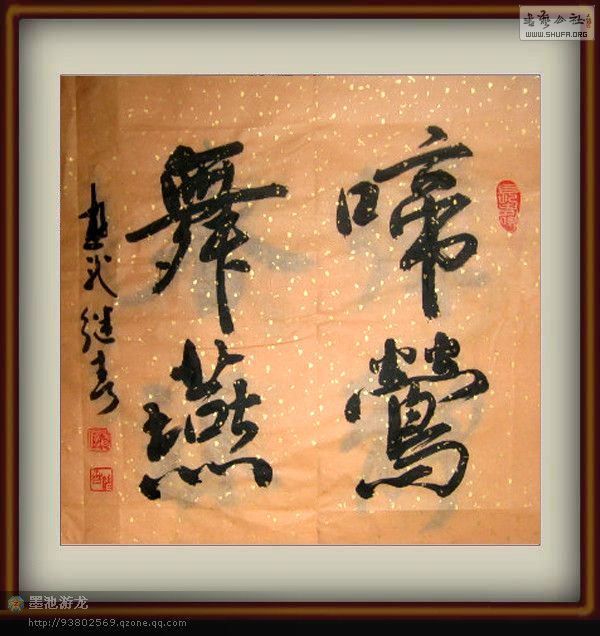 书艺公社
WWW.SHUFA.ORG
啼鶯
舞燕
墨池游龙
http://93802569.qzone.qq.com